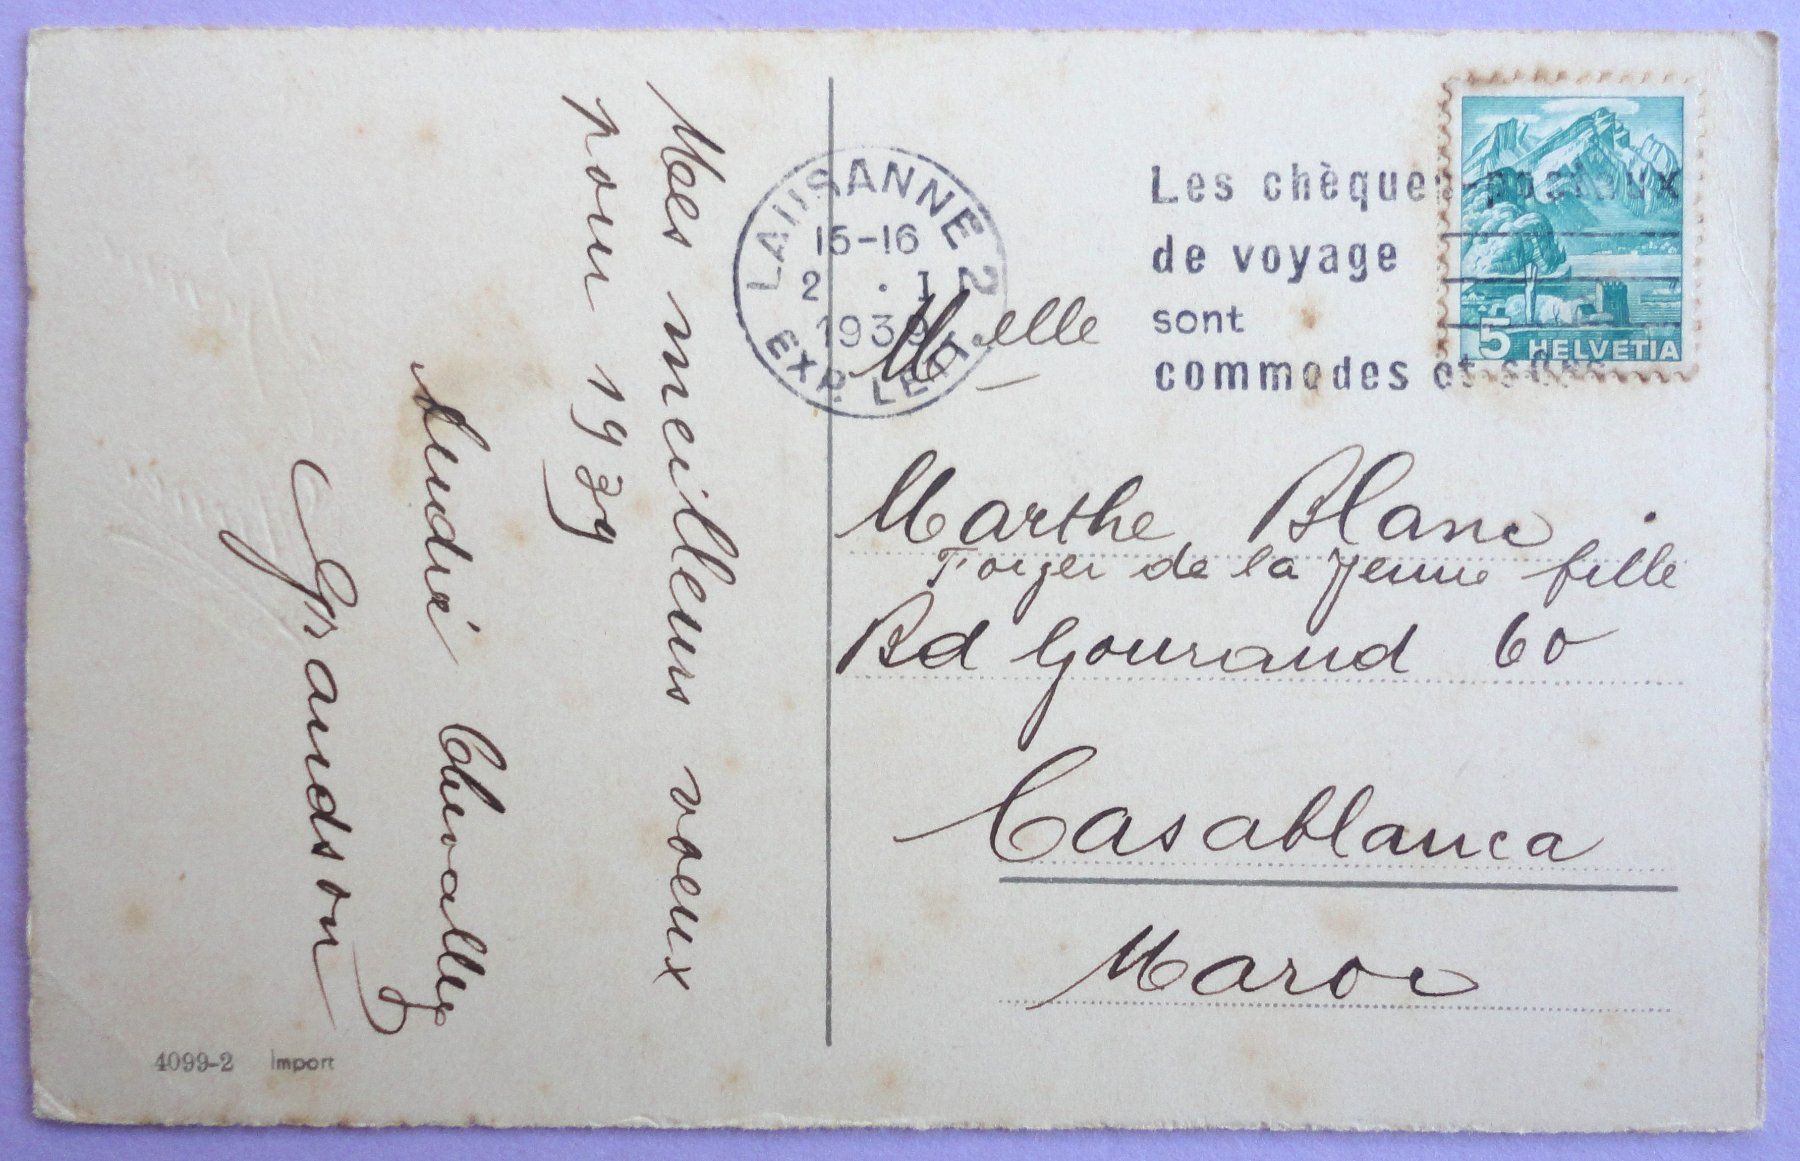 Mes meilleurs voeux
pour 1939
André Chevalley
Grandson
4099-2 Import
LAUSANNE 2
15-16
2 . I
1939
EXP. LETT.
Les chèques postaux
de voyage
sont
commodes et sûrs
5 HELVETIA
Melle
Marthe Blanc
Foyer de la Jeune fille
Bd Gouraud 60
Casablanca
Maroc